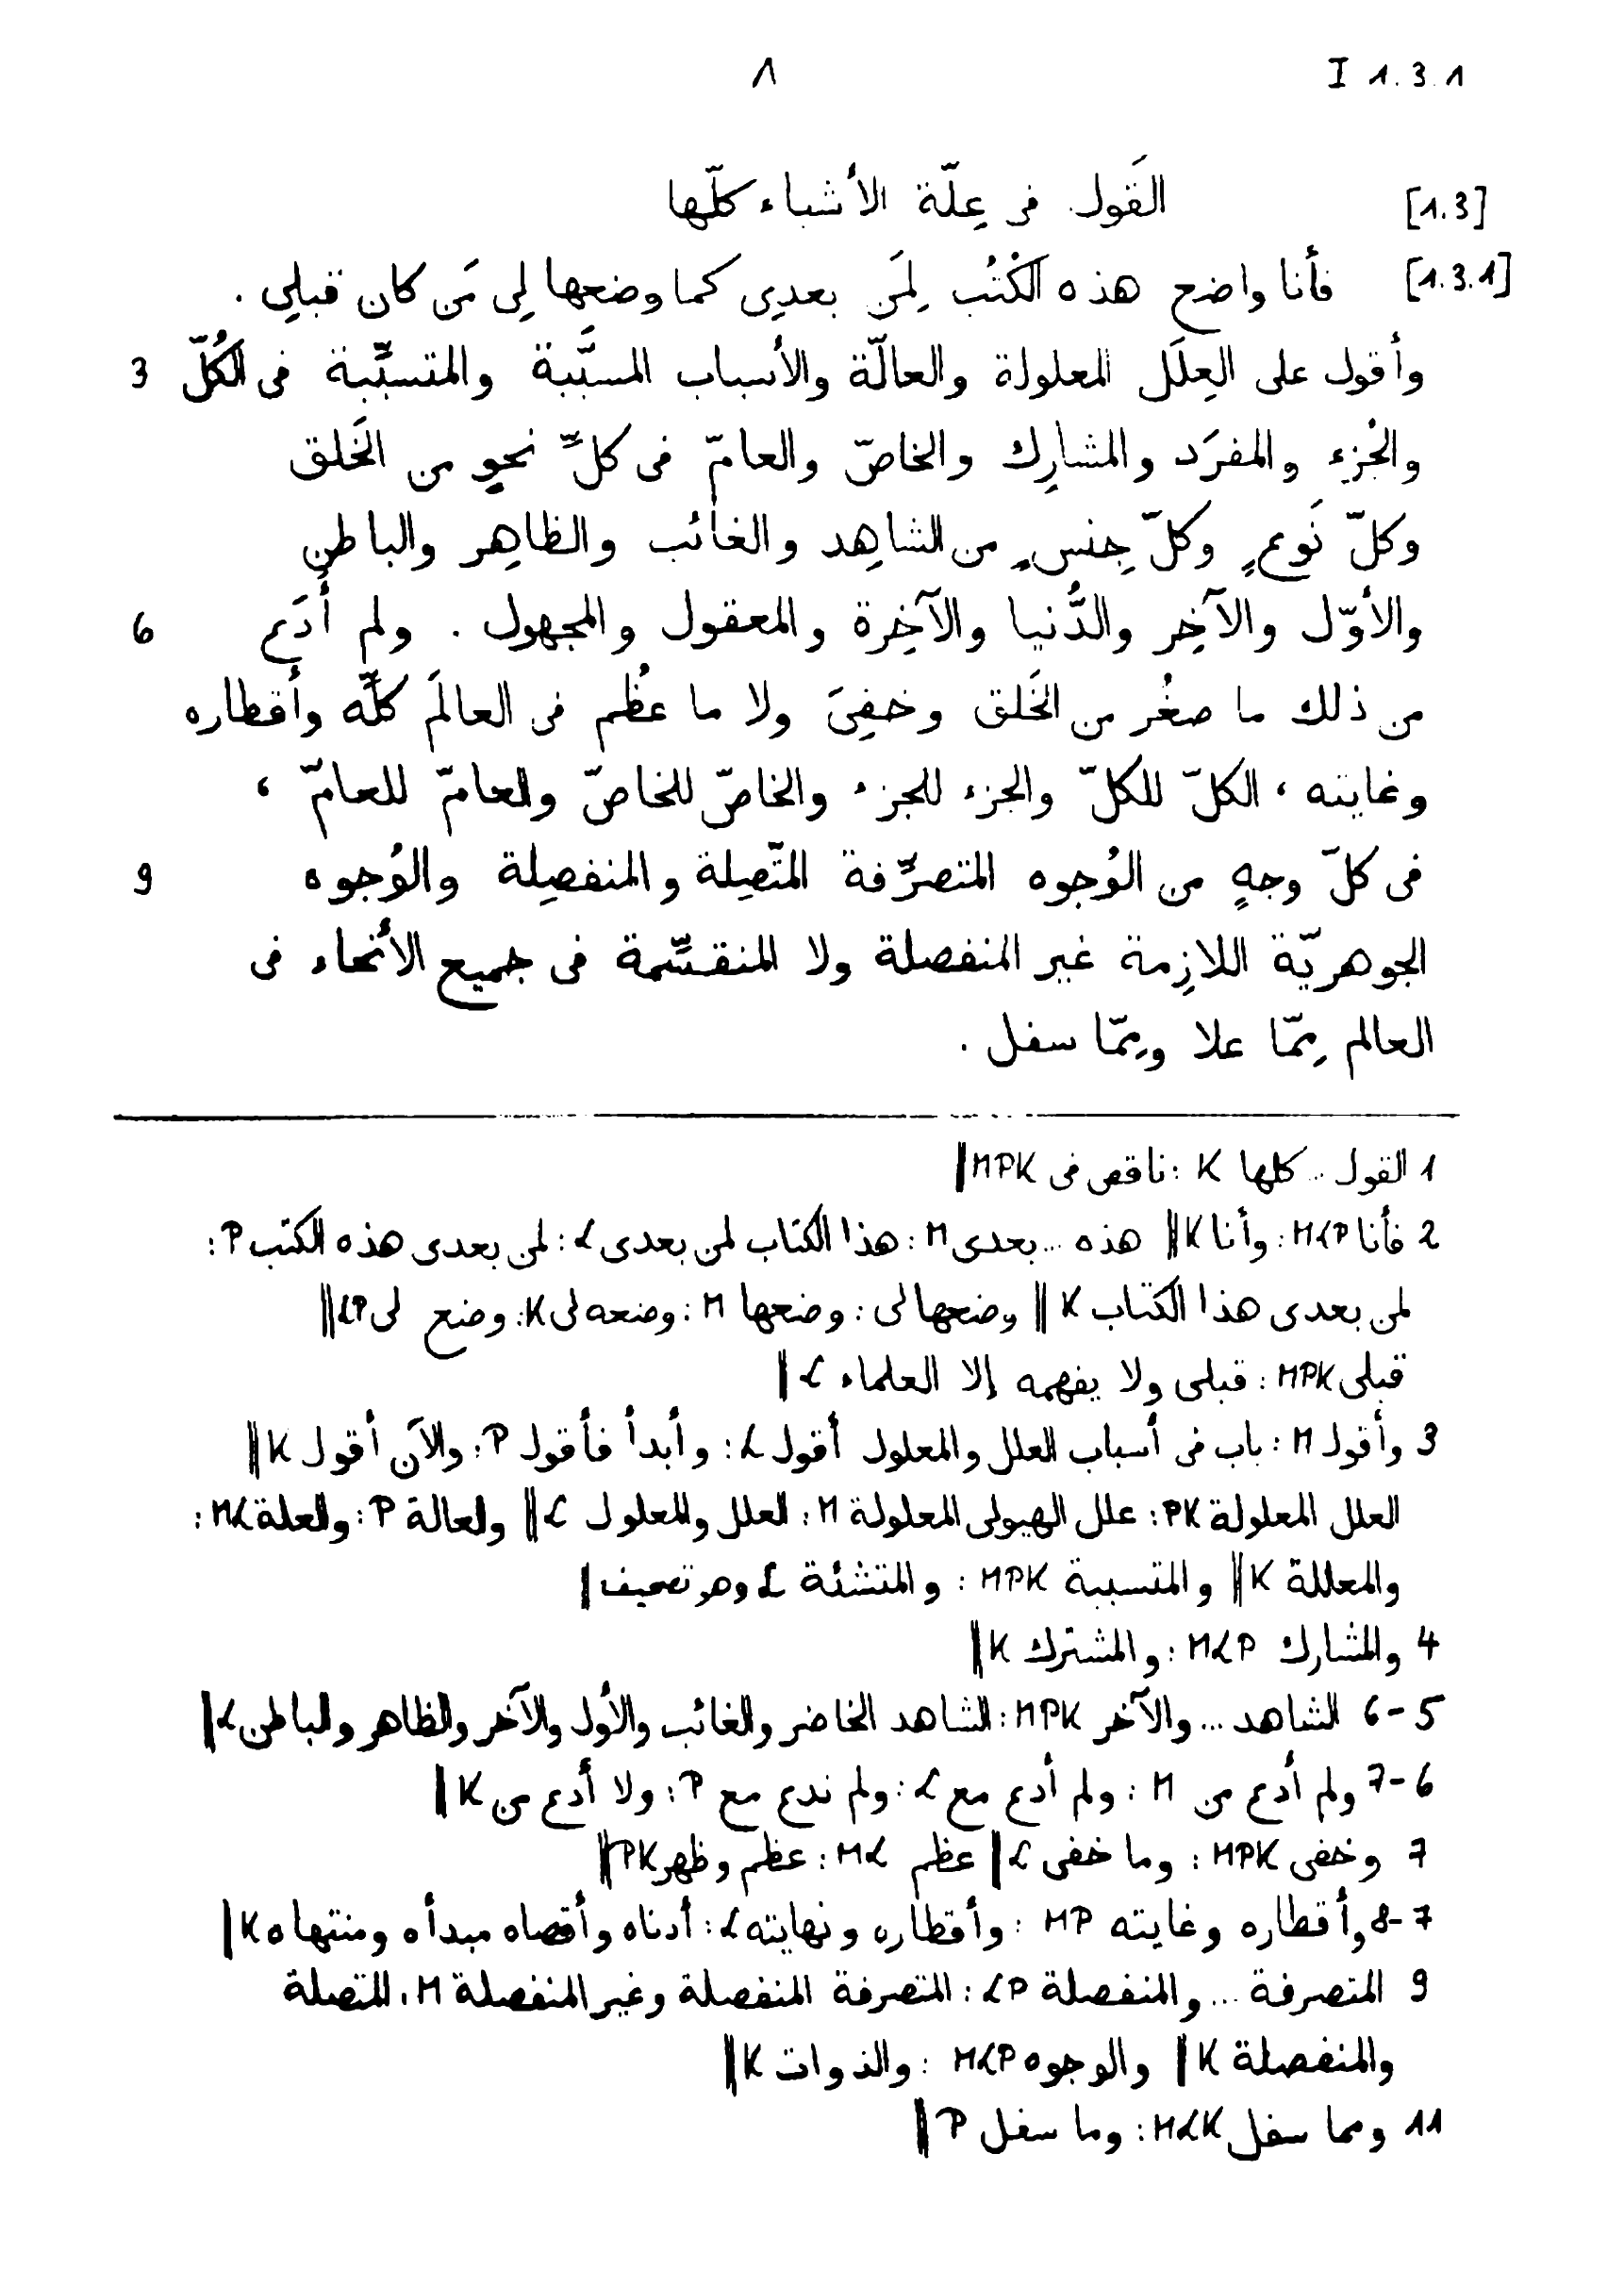 I 1.3.1 ٨
[1.3] القَول فى عِلّة الأشياء كلّها
[1.3.1] فأنا واضح هذه الكُتُب لِمَن بعدِى كما وضعها لِى مَن كان قبلِى .
وأقول على العِلَل المعلولة والعالّة والأسباب المسبَّبة والمتسبِّبة فى الكُلّ 3
والجُزء والمفرَد والمشارِك والخاصّ والعامّ فى كلِّ نحوٍ من الخَلق
وكلّ نَوعٍ وكلّ جِنسٍ من الشاهِد والغائب والظاهِر والباطن
والأوّل والآخِر والدُّنيا والآخِرة والمعقول والمجهول . ولم أدَع 6
من ذلك ما صغُر من الخَلق وخفِىَ ولا ما عظُم فى العالَم كلِّه وأقطاره
وغايته ، الكلّ للكلّ والجزء للجزء والخاصّ للخاصّ والعامّ للعامّ ،
فى كلّ وجهٍ من الوُجوه المتصرِّفة المتّصِلة والمنفصِلة والوُجوه 9
الجوهريّة اللازِمة غير المنفصلة ولا المنقسِّمة فى جميع الأنحاء فى
العالم مِمّا علا ومِمّا سفل .
1 القول .. كلها K : ناقص فى MPK‖
2 فأنا MLP : وأنا K‖ هذه ... بعدى M : هذا الكتاب لمن بعدى L : لمن بعدى هذه الكتب P :
لمن بعدى هذا الكتاب K ‖ وضعها لى : وضعها M : وضعه لى K : وضع لى LP‖
قبلى MPK : قبلى ولا يفهمه إلا العلماء L ‖
3 وأقول M : باب فى أسباب العلل والمعلول أقول L : وأبدأ فأقول P : والآن أقول K‖
العلل المعلولة PK : علل الهيولى المعلولة M : العلل والمعلول L ‖ والعالة P : والعلة ML :
والمعللة K‖ والمتسببة MPK : والمتشئة L وهو تصحيف‖
4 والمشارك MLP : والمشترك K‖
5-6 الشاهد ... والآخر MPK : الشاهد الحاضر والغائب والأول والآخر والظاهر والباطن L‖
6-7 ولم أدع من M : ولم أدع مع L : ولم ندع مع P : ولا أدع من K‖
7 وخفى MPK : وما خفى L‖ عظم ML : عظم وظهر PK‖
7-8 وأقطاره وغايته MP : وأقطاره ونهايته L : أدناه وأقصاه مبدأه ومنتهاه K‖
9 المتصرفة ... والمنفصلة LP : المتصرفة المنفصلة وغير المنفصلة M : المتصلة
والمنفصلة K‖ والوجوه MLP : والذوات K‖
11 ومما سفل MLK : وما سفل P‖